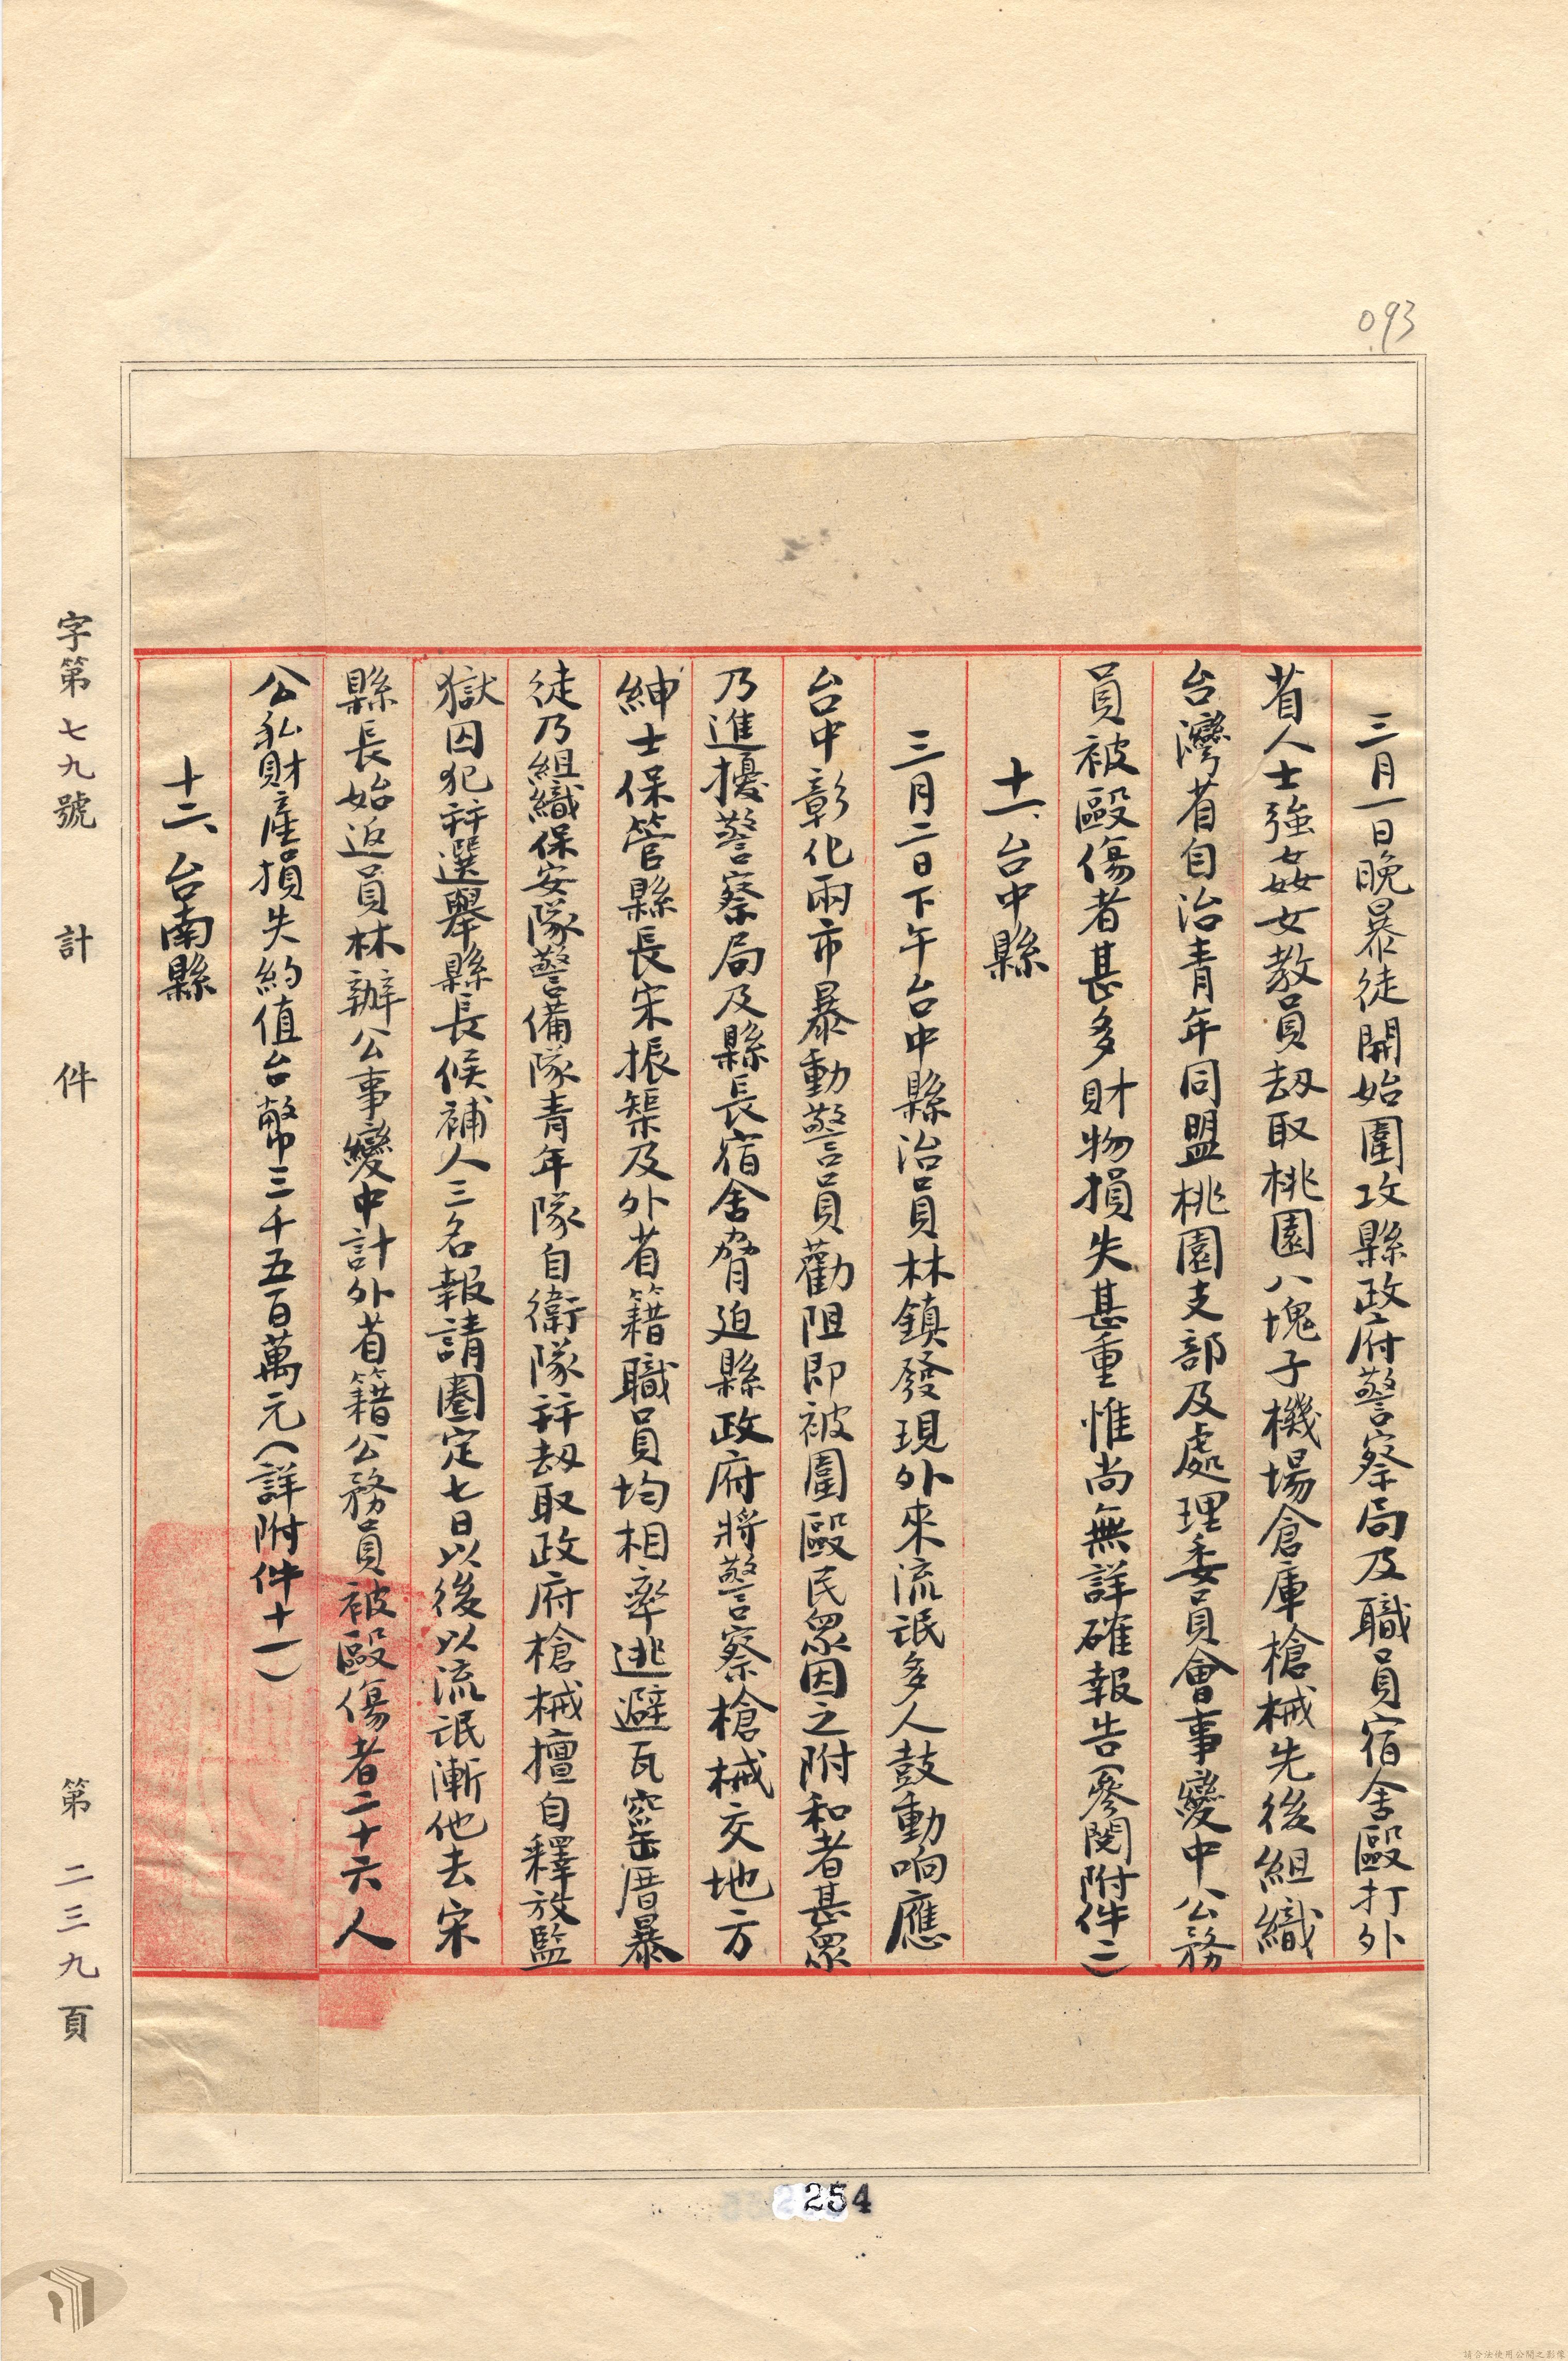 093
三月一日晚暴徒開始圍攻縣政府警察局及職員宿舍毆打外
省人士強姦女教員刼取桃園八塊子機場倉庫槍械先後組織
台灣省自治青年同盟桃園支部及處理委員會事變中公務
員被毆傷者甚多財物損失甚重惟尚無詳確報告(參閱附件二)
十一、台中縣
三月二日下午台中縣治員林鎮發現外來流氓多人鼓動响應
台中彰化兩市暴動警員勸阻即被圍毆民眾因之附和者甚眾
乃進擾警察局及縣長宿舍脅迫縣政府將警察槍械交地方
紳士保管縣長宋振榘及外省籍職員均相率逃避瓦窰厝暴
徒乃組織保安隊警備隊青年隊自衛隊并刼取政府槍械擅自釋放監
獄囚犯并選舉縣長候補人三名報請圈定七日以後以流氓漸他去宋
縣長始返員林辦公事變中計外省籍公務員被毆傷者二十六人
公私財產損失約值台幣三千五百萬元(詳附件十一)
十二、台南縣
字第七九號 計 件 第二三九頁
254
請合法使用公開之影像